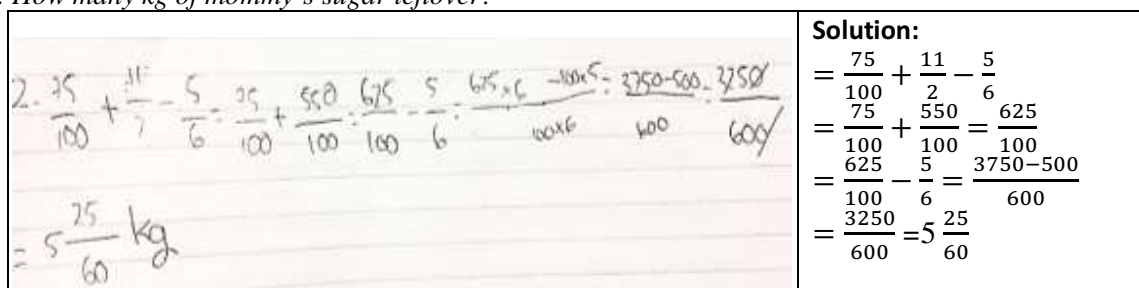 . How many kg of mommy's sugar leftover?
2. 75/100 + 11/2 - 5/6 = 75/100 + 550/100 = 625/100 - 5/6 = 625×6 - 100×5/100×6 = 3750-500/600 = 3250/600
= 5 25/60 kg
Solution:
= 75/100 + 11/2 − 5/6
= 75/100 + 550/100 = 625/100
= 625/100 − 5/6 = 3750−500/600
= 3250/600 =5 25/60